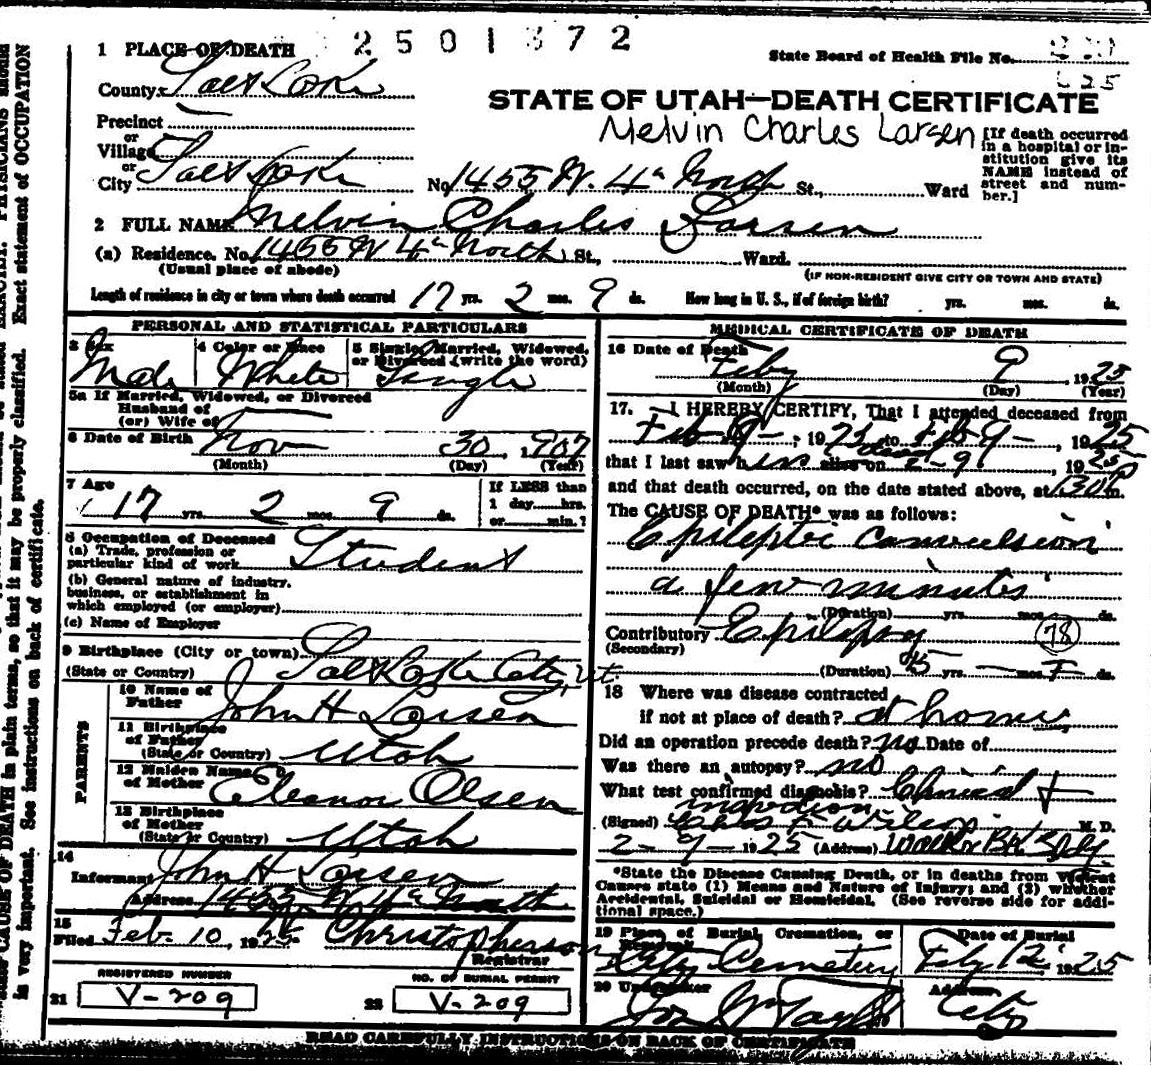 2501372
1 PLACE OF DEATH
State Board of Health File No.
County Salt Lake
STATE OF UTAH—DEATH CERTIFICATE
Precinct
or
Village
or
City Salt Lake
Melvin Charles Larsen
[If death occurred
in a hospital or in-
stitution give its
NAME instead of
street and num-
ber.]
No. 1455 W. 4th North St., Ward
2 FULL NAME Melvin Charles Larsen
(a) Residence. No. 1455 W 4th North St., Ward.
(Usual place of abode)
(IF NON-RESIDENT GIVE CITY OR TOWN AND STATE)
Length of residence in city or town where death occurred 17 yrs. 2 mos. 9 ds. How long in U. S., if of foreign birth? yrs. mos. ds.
PERSONAL AND STATISTICAL PARTICULARS
3 Sex
Male
4 Color or Race
White
5 Single, Married, Widowed,
or Divorced (write the word)
Single
5a If Married, Widowed, or Divorced
Husband of
(or) Wife of
6 Date of Birth Nov 30, 1907
(Month) (Day) (Year)
7 Age
17 yrs. 2 mos. 9 ds.
If LESS than
1 day......hrs.
or......min.?
8 Occupation of Deceased
(a) Trade, profession or
particular kind of work Student
(b) General nature of industry,
business, or establishment in
which employed (or employer)
(c) Name of Employer
9 Birthplace (City or town) Salt Lake City, Ut.
(State or Country)
PARENTS
10 Name of
Father John H Larsen
11 Birthplace
of Father
(State or Country) Utah
12 Maiden Name
of Mother Eleanor Olsen
13 Birthplace
of Mother
(State or Country) Utah
14
Informant John H Larsen
Address 1455 W 4th North
15
Filed Feb. 10, 1925 Christopherson
Registrar
REGISTERED NUMBER
21 V-209
NO. OF BURIAL PERMIT
22 V-209
MEDICAL CERTIFICATE OF DEATH
16 Date of Death
Feby 9, 1925
(Month) (Day) (Year)
17. I HEREBY CERTIFY, That I attended deceased from
Feb-9-, 1925 to Feb 9-, 1925
dead
that I last saw him alive on 2-9, 1925
and that death occurred, on the date stated above, at 130 P m.
The CAUSE OF DEATH* was as follows:
Epileptic convulsion
a few minutes
(Duration) yrs. mos. ds.
Contributory Epilepsy 78
(Secondary)
(Duration) yrs. mos.
18 Where was disease contracted
if not at place of death? at home
Did an operation precede death? no Date of
Was there an autopsy? no
What test confirmed diagnosis? Clinical +
inspection
(Signed) Chas F Wilcox M. D.
2-9-1925 (Address) Walker Bk Bldg.
*State the Disease Causing Death, or in deaths from Violent
Causes state (1) Means and Nature of Injury; and (2) whether
Accidental, Suicidal or Homicidal. (See reverse side for addi-
tional space.)
19 Place of Burial, Cremation, or
Removal
City Cemetery
Date of Burial
Feby 12, 1925
20 Undertaker
Address
City
READ CAREFULLY INSTRUCTIONS ON BACK OF CERTIFICATE
CAUSE OF DEATH in plain terms, so that it may be properly classified. Exact statement of OCCUPATION
is very important. See instructions on back of certificate.